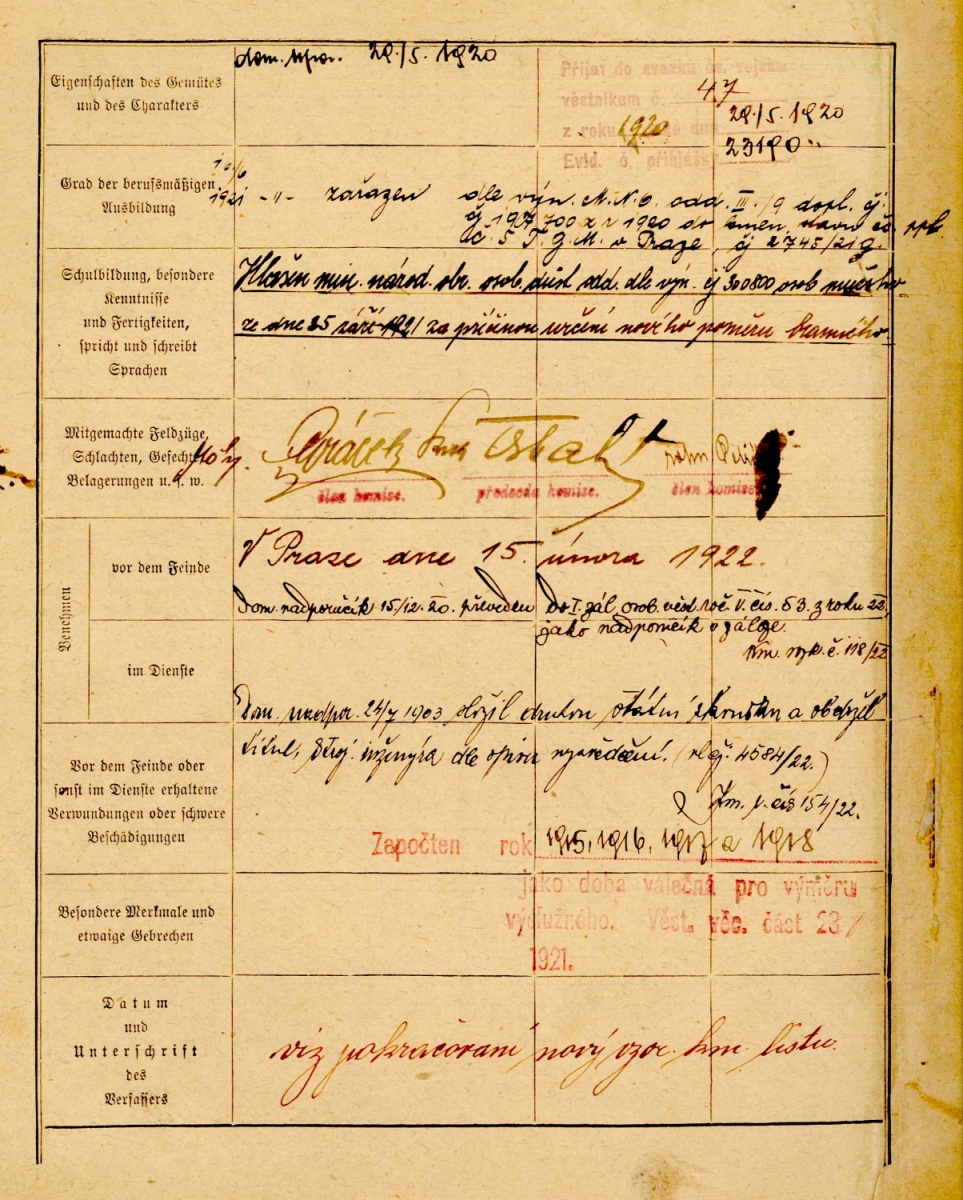 Eigenschaften des Gemütes
und des Charakters
28./5. 1920
Přijat do svazku čs. vojska
věstníkem č. 47
z roku 1920 ze dne 28./5. 1920
Evid. č. přihlášky 23190
Grad der berufsmäßigen
Ausbildung
10/6
1921 -„- zařazen dle výn. M.N.O. odd. III./9 dopl. čj.
Praze, čj 2745/21
Schulbildung, besondere
Kenntnisse
und Fertigkeiten,
spricht und schreibt
Sprachen
Hlášen min. národ. obr. osob. důst. odd. dle výn. čj 300800 osob
ze dne 25 září 1921 za příčinou určení nového poměru branného.
Mitgemachte Feldzüge,
Schlachten, Gefechte,
Belagerungen u. s. w.
člen komise. předseda komise. člen komise.
Benehmen
vor dem Feinde
V Praze dne 15. února 1922.
Dom. nadporučík 15/12. 20. převeden do I. zál. osob. věst. roč. V. čís. 83. z roku 22,
jako nadporučík v záloze.
Km. výk. č. 118/22
im Dienste
Dom. nadpor. 24/7 1903 složil druhou státní zkoušku a obdržel
titul, stroj. inženýra dle opisu vysvědčení. (čj. 4584/22.)
čís 154/22.
Vor dem Feinde oder
sonst im Dienste erhaltene
Verwundungen oder schwere
Beschädigungen
Započten rok 1915, 1916, 1917 a 1918
jako doba válečná pro výměru
výslužného. Věst. věc. část 23/
1921.
Besondere Merkmale und
etwaige Gebrechen
Datum
und
Unterschrift
des
Verfassers
viz pokračování nový vzor. km. listu.